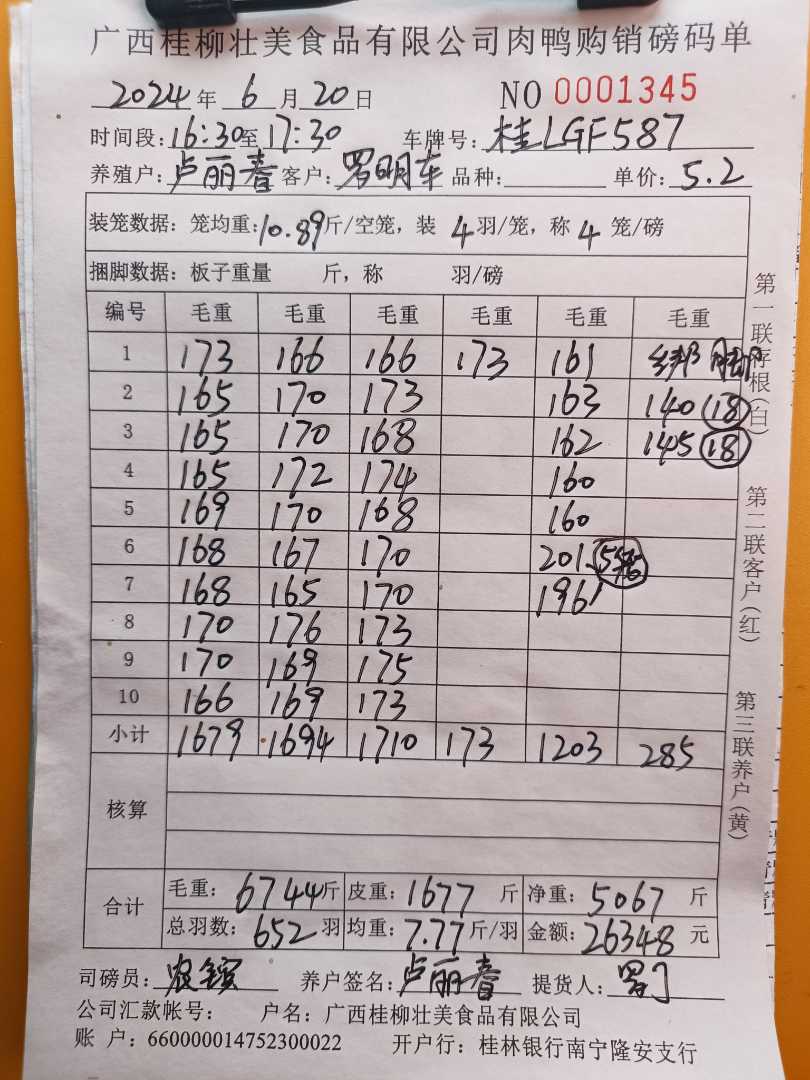 广西桂柳壮美食品有限公司肉鸭购销磅码单
2024年 6月20日 NO 0001345
时间段:16:30至17:30 车牌号:桂LGF587
养殖户:卢丽春 客户:罗明车 品种: 单价:5.2
装笼数据:笼均重:10.89斤/空笼,装 4羽/笼,称 4 笼/磅
捆脚数据:板子重量 斤,称 羽/磅
编号 毛重 毛重 毛重 毛重 毛重 毛重
1 173 166 166 173 161 绑脚
2 165 170 173 163 140 18
3 165 170 168 162 145 18
4 165 172 174 160
5 169 170 168 160
6 168 167 170 201 5笼
7 168 165 170 196
8 170 176 173
9 170 169 175
10 166 169 173
小计 1679 1694 1710 173 1203 285
核算
合计
毛重:6744斤 皮重:1677 斤 净重:5067 斤
总羽数:652羽 均重:7.77斤/羽 金额:26348 元
司磅员:农 养户签名:卢丽春 提货人:罗
公司汇款帐号: 户名:广西桂柳壮美食品有限公司
账 户:660000014752300022 开户行:桂林银行南宁隆安支行
第一联存根(白)
第二联客户(红)
第三联养户(黄)